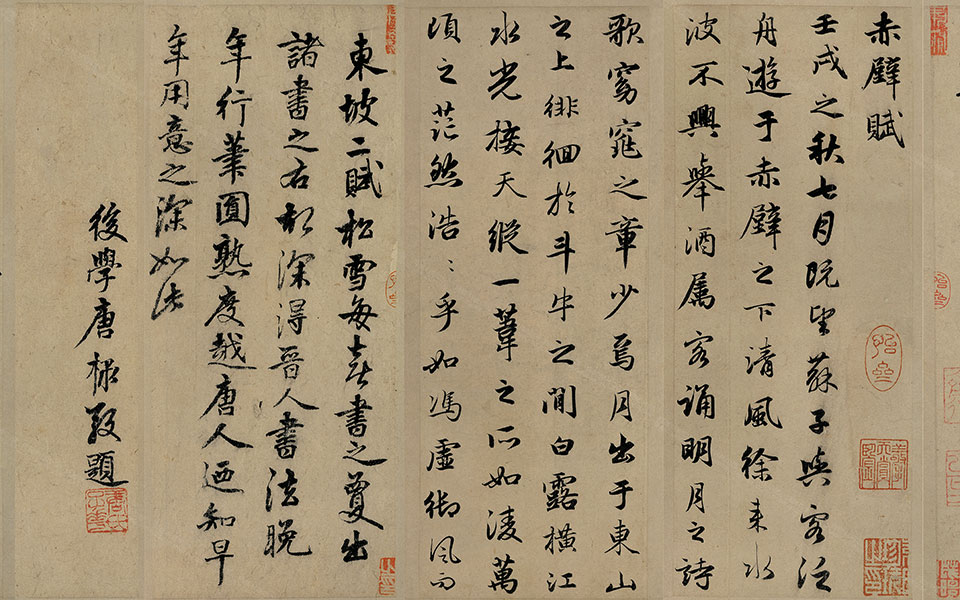 赤壁賦
壬戌之秋七月既望蘇子與客泛
舟遊于赤壁之下清風徐来水
波不興舉酒属客誦明月之詩
歌窈窕之章少焉月出于東山
之上徘徊於斗牛之間白露横江
水光接天縱一葦之所如凌萬
頃之茫然浩〻乎如馮虚御風而
東坡二賦松雪每喜書之曼出
諸書之右故深得晉人書法晩
年行筆圓熟度越唐人迺知早
年用意之深如此
後學唐棣敬題